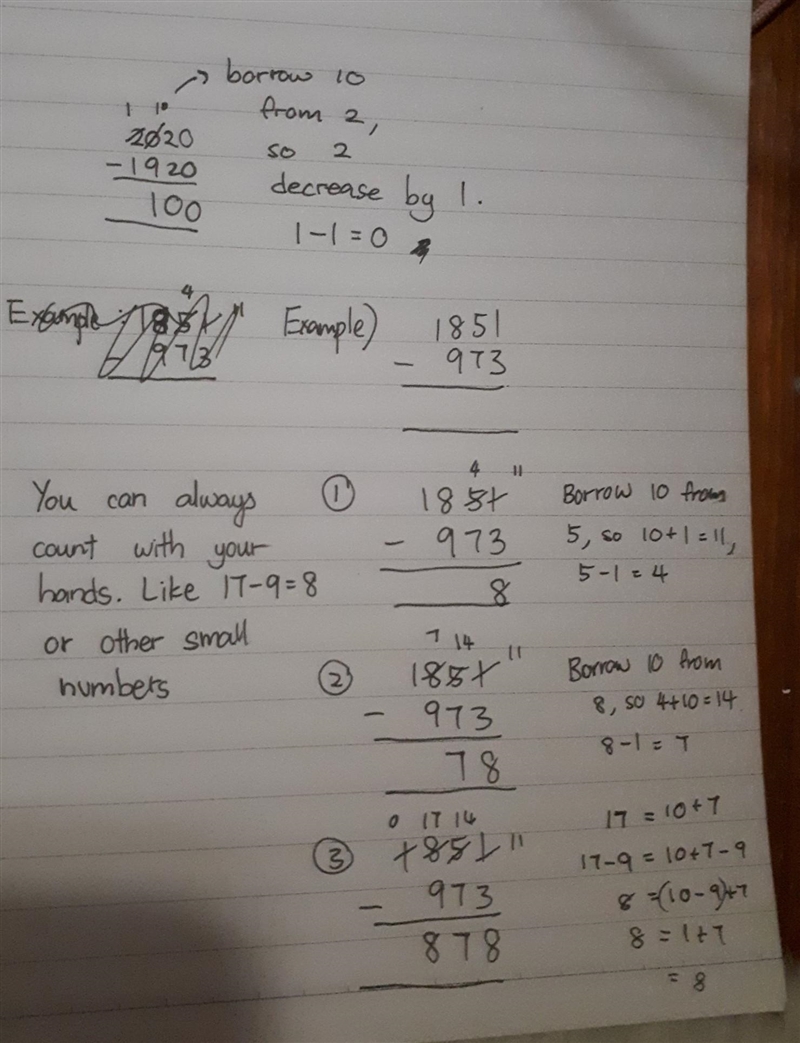 → borrow 10
1 10 from 2,
2020 so 2
-1920 decrease by 1.
100 1-1=0
4
Example: 1851 11
973
Example) 1851
- 973
You can always
count with your
hands. Like 17-9=8
or other small
numbers
① 4 11
1851
- 973
8
Borrow 10 from
5, so 10+1=11,
5-1=4
② 7 14 11
1851
- 973
78
Borrow 10 from
8, so 4+10=14
8-1=7
③ 0 17 14 11
1851
- 973
878
17 = 10+7
17-9 = 10+7-9
8 =(10-9)+7
8 = 1+7
= 8